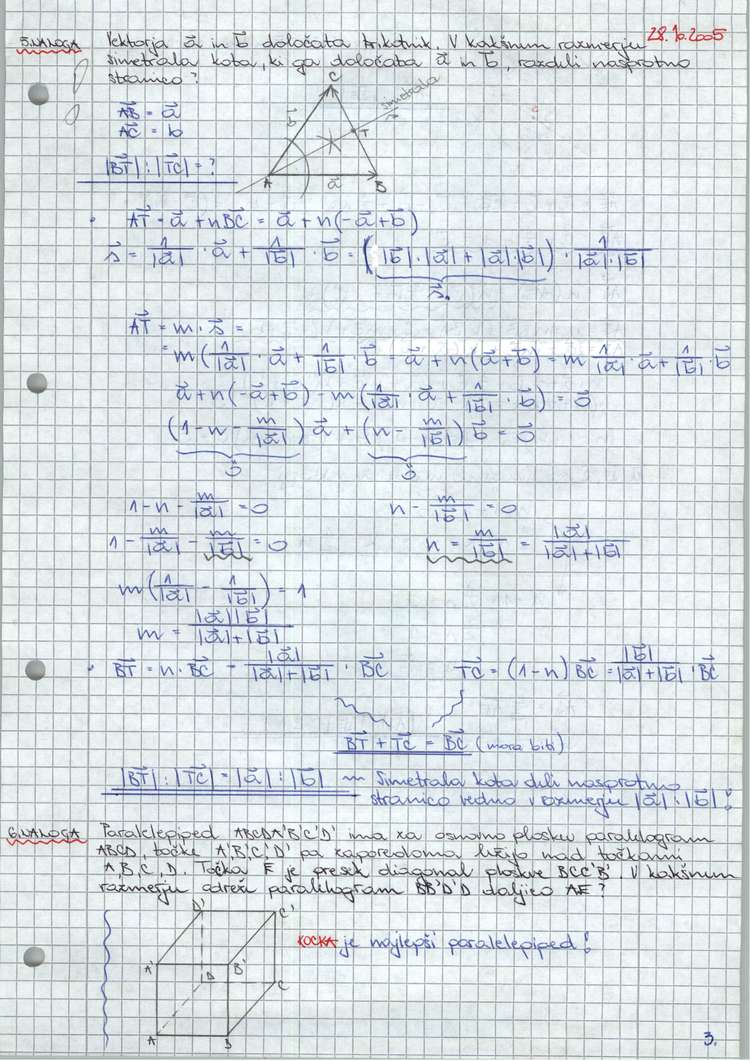 28.10.2005
5.NALOGA Vektorja \vec{a} in \vec{b} določata trikotnik. V kakšnem razmerju
simetrala kota, ki ga določata \vec{a} in \vec{b}, razdeli nasprotno
stranico?
C
simetrala
\vec{AB} = \vec{a}
\vec{AC} = \vec{b}
\vec{b}
\vec{s}
T
|\vec{BT}| : |\vec{TC}| = ?
A
\vec{a}
B
• \vec{AT} = \vec{a} + n\vec{BC} = \vec{a} + n(-\vec{a}+\vec{b})
\vec{s} = \frac{1}{|\vec{a}|} · \vec{a} + \frac{1}{|\vec{b}|} · \vec{b} = (|\vec{b}|·|\vec{a}| + |\vec{a}|·|\vec{b}|) · \frac{1}{|\vec{a}|·|\vec{b}|}
\vec{s}.
\vec{AT} = m · \vec{s} =
= m(\frac{1}{|\vec{a}|} · \vec{a} + \frac{1}{|\vec{b}|} · \vec{b} = \vec{a} + n(\vec{a}+\vec{b}) = m \frac{1}{|\vec{a}|} · \vec{a} + \frac{1}{|\vec{b}|} · \vec{b}
\vec{a} + n(-\vec{a}+\vec{b}) - m(\frac{1}{|\vec{a}|} · \vec{a} + \frac{1}{|\vec{b}|} · \vec{b}) = \vec{0}
(1-n-\frac{m}{|\vec{a}|})\vec{a} + (n-\frac{m}{|\vec{b}|})\vec{b} = \vec{0}
0 0
1-n-\frac{m}{|\vec{a}|} = 0 n-\frac{m}{|\vec{b}|} = 0
1-\frac{m}{|\vec{a}|}-\frac{m}{|\vec{b}|} = 0 n = \frac{m}{|\vec{b}|} = \frac{|\vec{a}|}{|\vec{a}|+|\vec{b}|}
m(\frac{1}{|\vec{a}|} - \frac{1}{|\vec{b}|}) = 1
m = \frac{|\vec{a}||\vec{b}|}{|\vec{a}|+|\vec{b}|}
• \vec{BT} = n·\vec{BC} = \frac{|\vec{a}|}{|\vec{a}|+|\vec{b}|} · \vec{BC} \vec{TC} = (1-n)\vec{BC} = \frac{|\vec{b}|}{|\vec{a}|+|\vec{b}|} · \vec{BC}
\vec{BT} + \vec{TC} = \vec{BC} (mora biti)
|\vec{BT}| : |\vec{TC}| = |\vec{a}| : |\vec{b}| ~ Simetrala kota deli nasprotno
stranico vedno v razmerju |\vec{a}| : |\vec{b}|!
6.NALOGA Paralelepiped ABCDA'B'C'D' ima za osnovno ploskev paralelogram
ABCD, točke A',B',C',D' pa zaporedoma ležijo nad točkami
A,B,C,D. Točka E je presek diagonal ploskve BCC'B'. V kakšnem
razmerju odreže paralelogram BB'D'D daljico AE?
D' C'
KOCKA je najlepši paralelepiped!
A' B'
D C
A B
3.